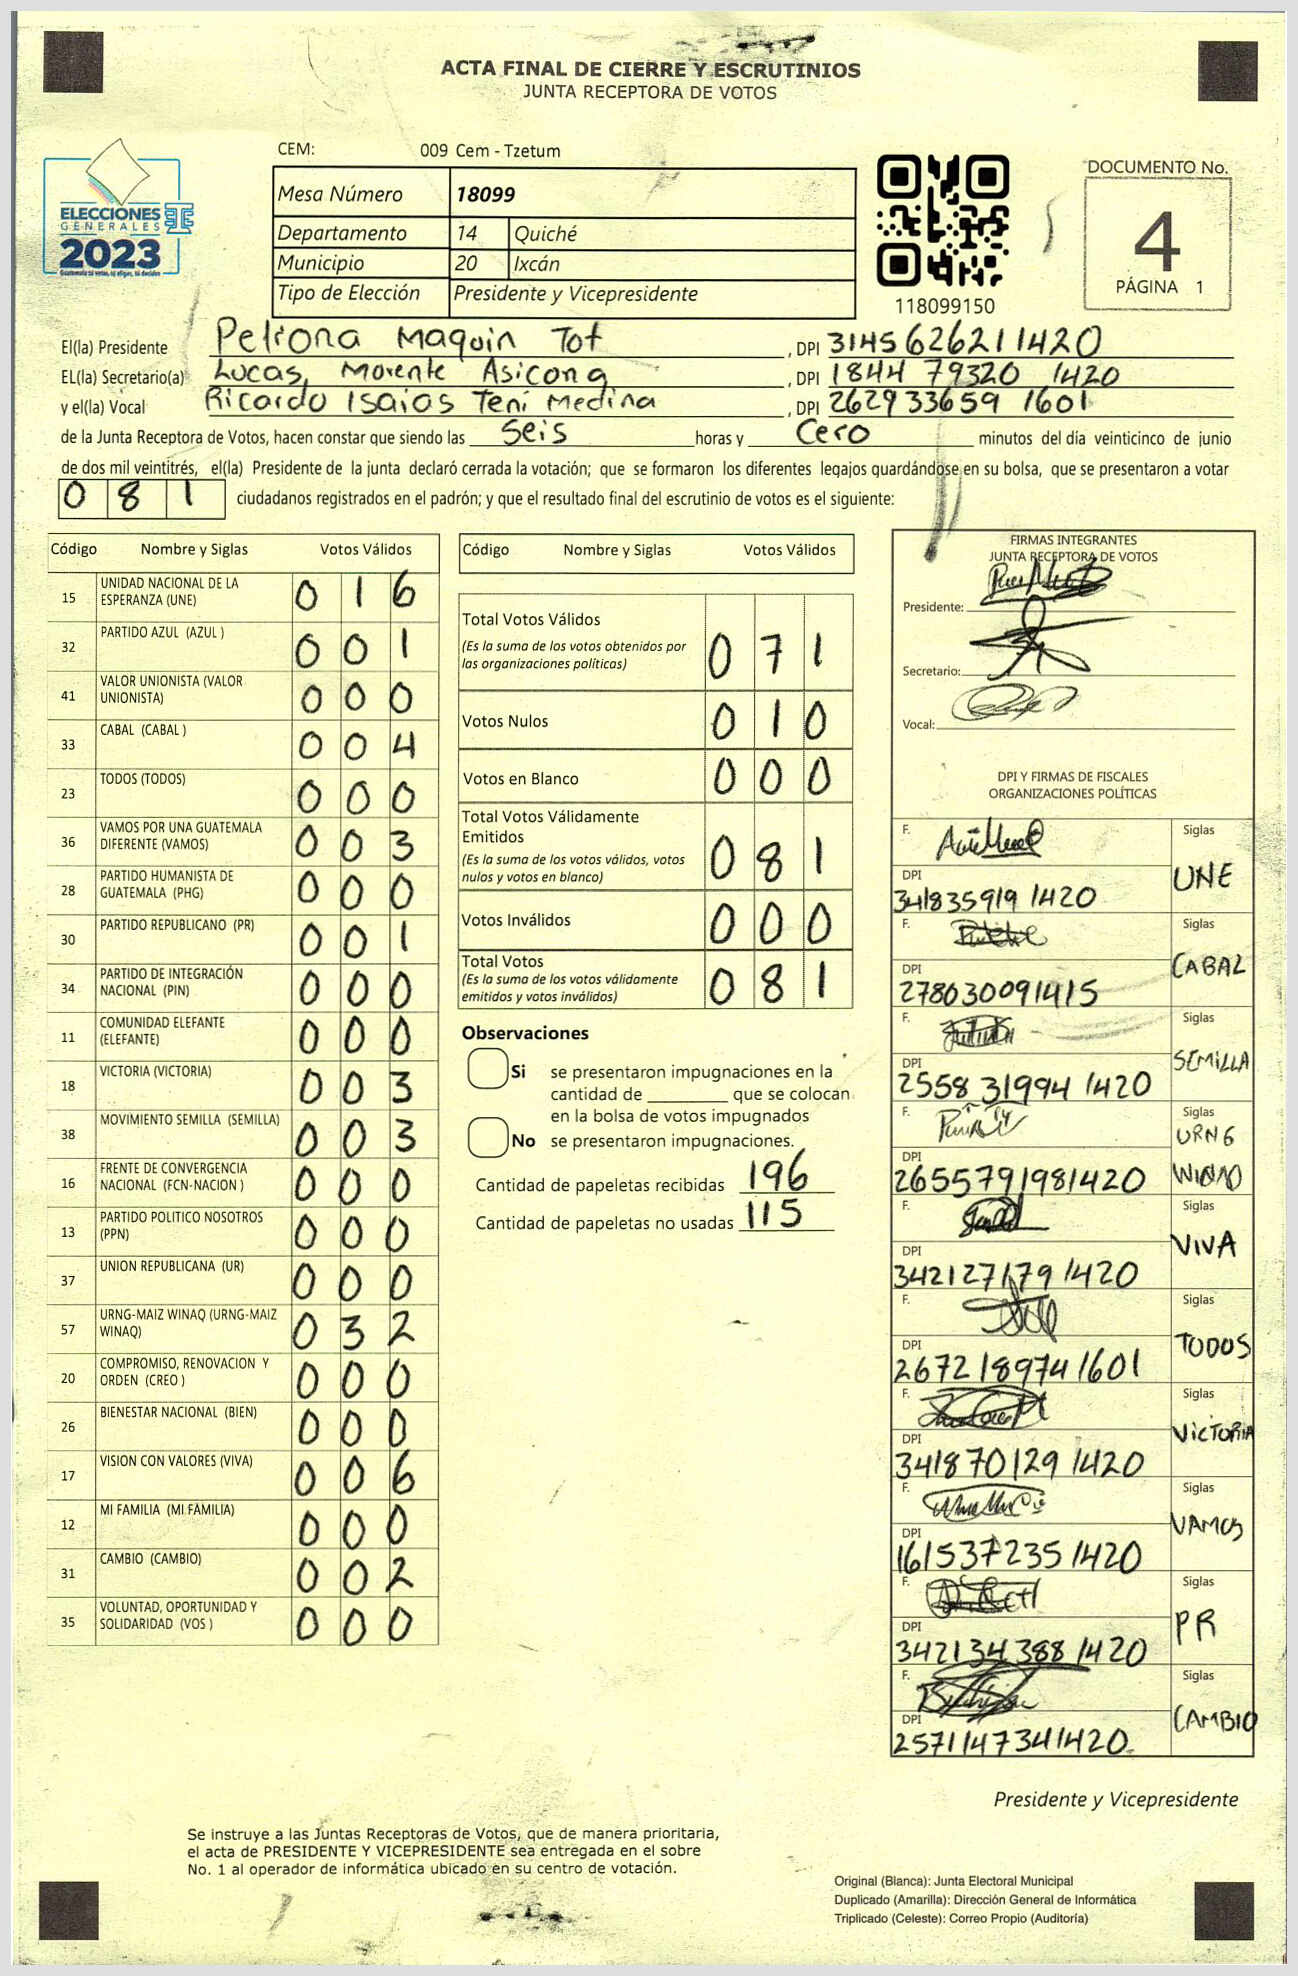 ACTA FINAL DE CIERRE Y ESCRUTINIOS
JUNTA RECEPTORA DE VOTOS
CEM: 009 Cem - Tzetum
Mesa Número 18099
Departamento 14 Quiché
Municipio 20 Ixcán
Tipo de Elección Presidente y Vicepresidente
ELECCIONES
GENERALES
2023
118099150
DOCUMENTO No.
4
PÁGINA 1
El(la) Presidente Petrona Maquin Tot, DPI 3145626211420
EL(la) Secretario(a) Lucas, Morente Asicona, DPI 1844 79320 1420
y el(la) Vocal Ricardo Isaias Tení Medina, DPI 262933659 1601
de la Junta Receptora de Votos, hacen constar que siendo las Seis horas y Cero minutos del día veinticinco de junio
de dos mil veintitrés, el(la) Presidente de la junta declaró cerrada la votación; que se formaron los diferentes legajos guardándose en su bolsa, que se presentaron a votar
0 8 1 ciudadanos registrados en el padrón; y que el resultado final del escrutinio de votos es el siguiente:
Código Nombre y Siglas Votos Válidos
15 UNIDAD NACIONAL DE LA ESPERANZA (UNE) 0 1 6
32 PARTIDO AZUL (AZUL ) 0 0 1
41 VALOR UNIONISTA (VALOR UNIONISTA) 0 0 0
33 CABAL (CABAL ) 0 0 4
23 TODOS (TODOS) 0 0 0
36 VAMOS POR UNA GUATEMALA DIFERENTE (VAMOS) 0 0 3
28 PARTIDO HUMANISTA DE GUATEMALA (PHG) 0 0 0
30 PARTIDO REPUBLICANO (PR) 0 0 1
34 PARTIDO DE INTEGRACIÓN NACIONAL (PIN) 0 0 0
11 COMUNIDAD ELEFANTE (ELEFANTE) 0 0 0
18 VICTORIA (VICTORIA) 0 0 3
38 MOVIMIENTO SEMILLA (SEMILLA) 0 0 3
16 FRENTE DE CONVERGENCIA NACIONAL (FCN-NACION ) 0 0 0
13 PARTIDO POLITICO NOSOTROS (PPN) 0 0 0
37 UNION REPUBLICANA (UR) 0 0 0
57 URNG-MAIZ WINAQ (URNG-MAIZ WINAQ) 0 3 2
20 COMPROMISO, RENOVACION Y ORDEN (CREO ) 0 0 0
26 BIENESTAR NACIONAL (BIEN) 0 0 0
17 VISION CON VALORES (VIVA) 0 0 6
12 MI FAMILIA (MI FAMILIA) 0 0 0
31 CAMBIO (CAMBIO) 0 0 2
35 VOLUNTAD, OPORTUNIDAD Y SOLIDARIDAD (VOS ) 0 0 0
Código Nombre y Siglas Votos Válidos
Total Votos Válidos 0 7 1
(Es la suma de los votos obtenidos por
las organizaciones políticas)
Votos Nulos 0 1 0
Votos en Blanco 0 0 0
Total Votos Válidamente
Emitidos 0 8 1
(Es la suma de los votos válidos, votos
nulos y votos en blanco)
Votos Inválidos 0 0 0
Total Votos 0 8 1
(Es la suma de los votos válidamente
emitidos y votos inválidos)
Observaciones
Si se presentaron impugnaciones en la
cantidad de ________ que se colocan
en la bolsa de votos impugnados
No se presentaron impugnaciones.
Cantidad de papeletas recibidas 196
Cantidad de papeletas no usadas 115
FIRMAS INTEGRANTES
JUNTA RECEPTORA DE VOTOS
Presidente:
Secretario:
Vocal:
DPI Y FIRMAS DE FISCALES
ORGANIZACIONES POLÍTICAS
F. Siglas
DPI UNE
341835919 1420
F. Siglas
DPI CABAL
278030091415
F. Siglas
DPI SEMILLA
2558 31994 1420
F. Siglas
URNG
DPI WINAQ
2655791981420
F. Siglas
DPI VIVA
342127179 1420
F. Siglas
DPI TODOS
2672189741601
F. Siglas
DPI VICTORIA
341870129 1420
F. Siglas
DPI VAMOS
161537235 1420
F. Siglas
DPI PR
342134388 1420
F. Siglas
DPI CAMBIO
2571147341420
Presidente y Vicepresidente
Se instruye a las Juntas Receptoras de Votos, que de manera prioritaria,
el acta de PRESIDENTE Y VICEPRESIDENTE sea entregada en el sobre
No. 1 al operador de informática ubicado en su centro de votación.
Original (Blanca): Junta Electoral Municipal
Duplicado (Amarilla): Dirección General de Informática
Triplicado (Celeste): Correo Propio (Auditoría)